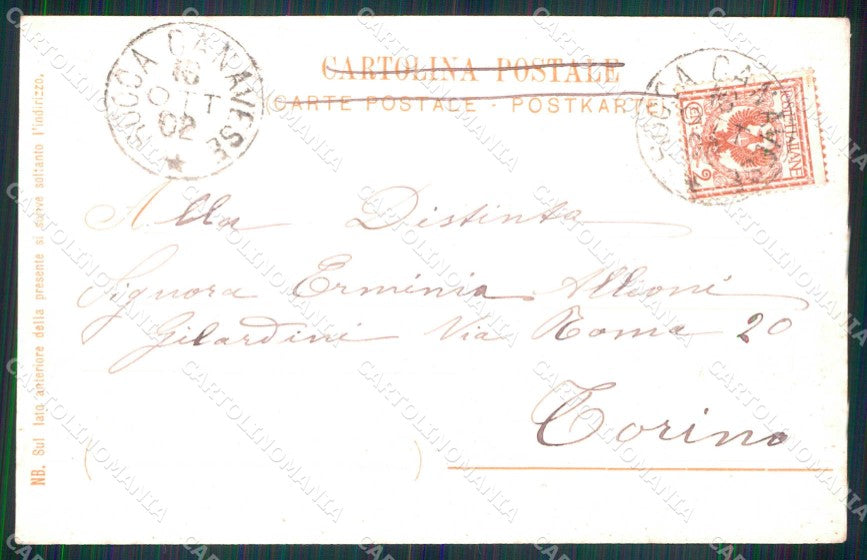 CARTOLINA POSTALE
(CARTE POSTALE - POSTKARTE)
ROCCA CANAVESE
16
OTT
02
ROCCA CANAVESE
POSTE ITALIANE
2
Alla Distinta
Signora Erminia Allioni
Gilardini Via Roma 20
Torino
NB. Sul lato anteriore della presente si scrive soltanto l'indirizzo.
CARTOLINOMANIA